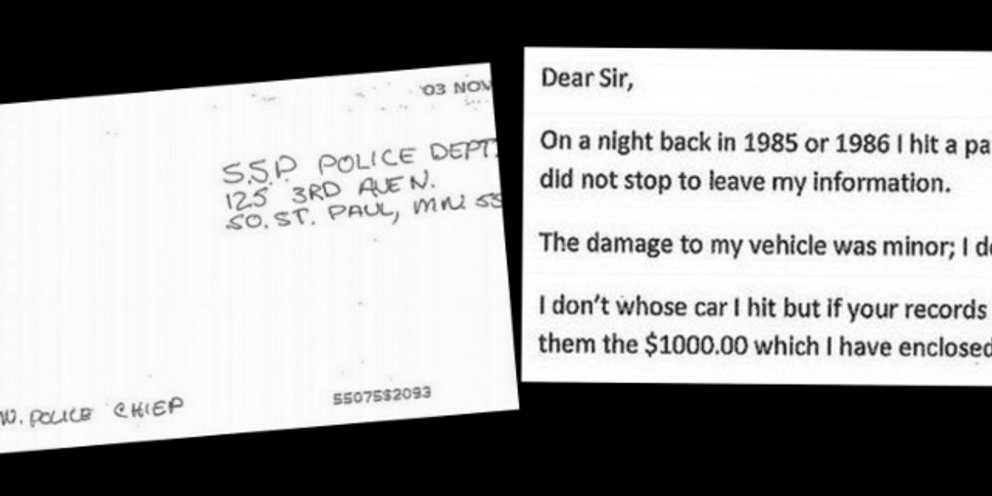 03 NOV
S.S.P POLICE DEPT.
125 3RD AVE N.
SO. ST. PAUL, MN 55
POLICE CHIEF
55075$2093
Dear Sir,
On a night back in 1985 or 1986 I hit a pa
did not stop to leave my information.
The damage to my vehicle was minor; I d
I don't whose car I hit but if your records
them the $1000.00 which I have enclosed